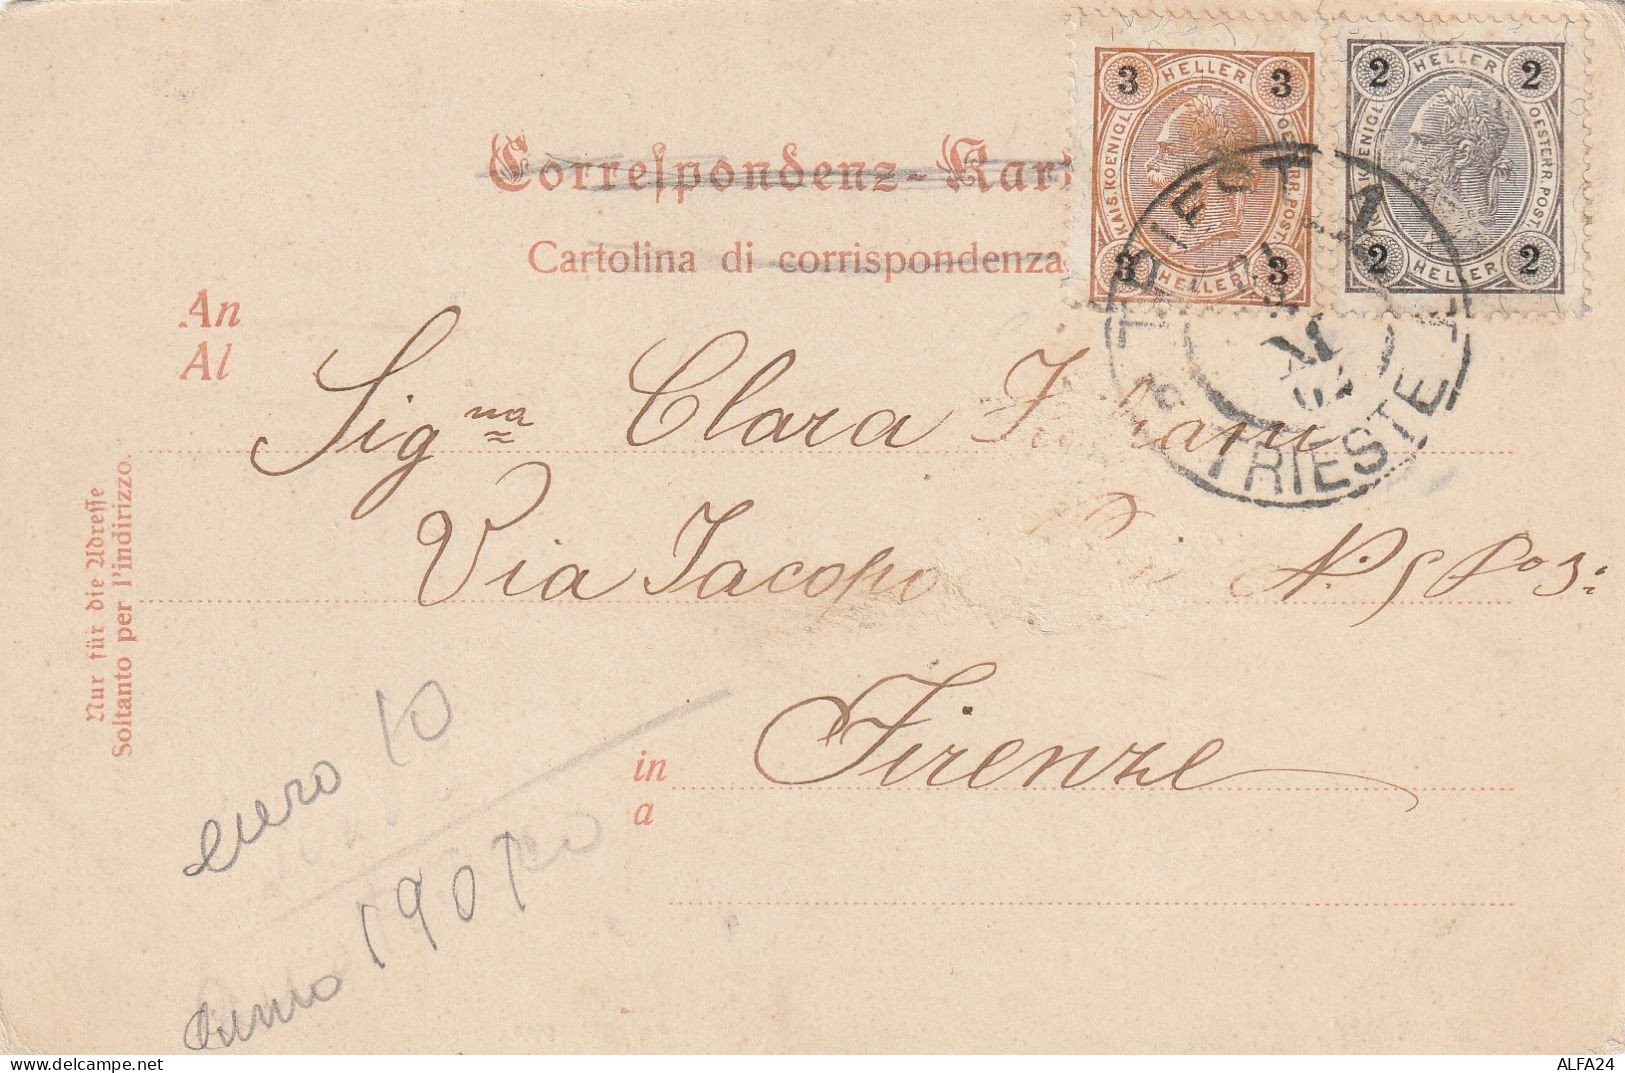 3 HELLER 3
KAIS. KOENIGL. OESTERR. POST.
3 HELLER 3
2 HELLER 2
KAIS. KOENIGL. OESTERR. POST.
2 HELLER 2
Correspondenz-Kar
Cartolina di corrispondenza
TRIESTE
TRIESTE
An
Al
Sig.na Clara
Via Jacopo N. 5 Po 3:
in Firenze
a
Nur für die Adresse
Soltanto per l'indirizzo.
euro 10
anno 1907
delcampe.net
ALFA24